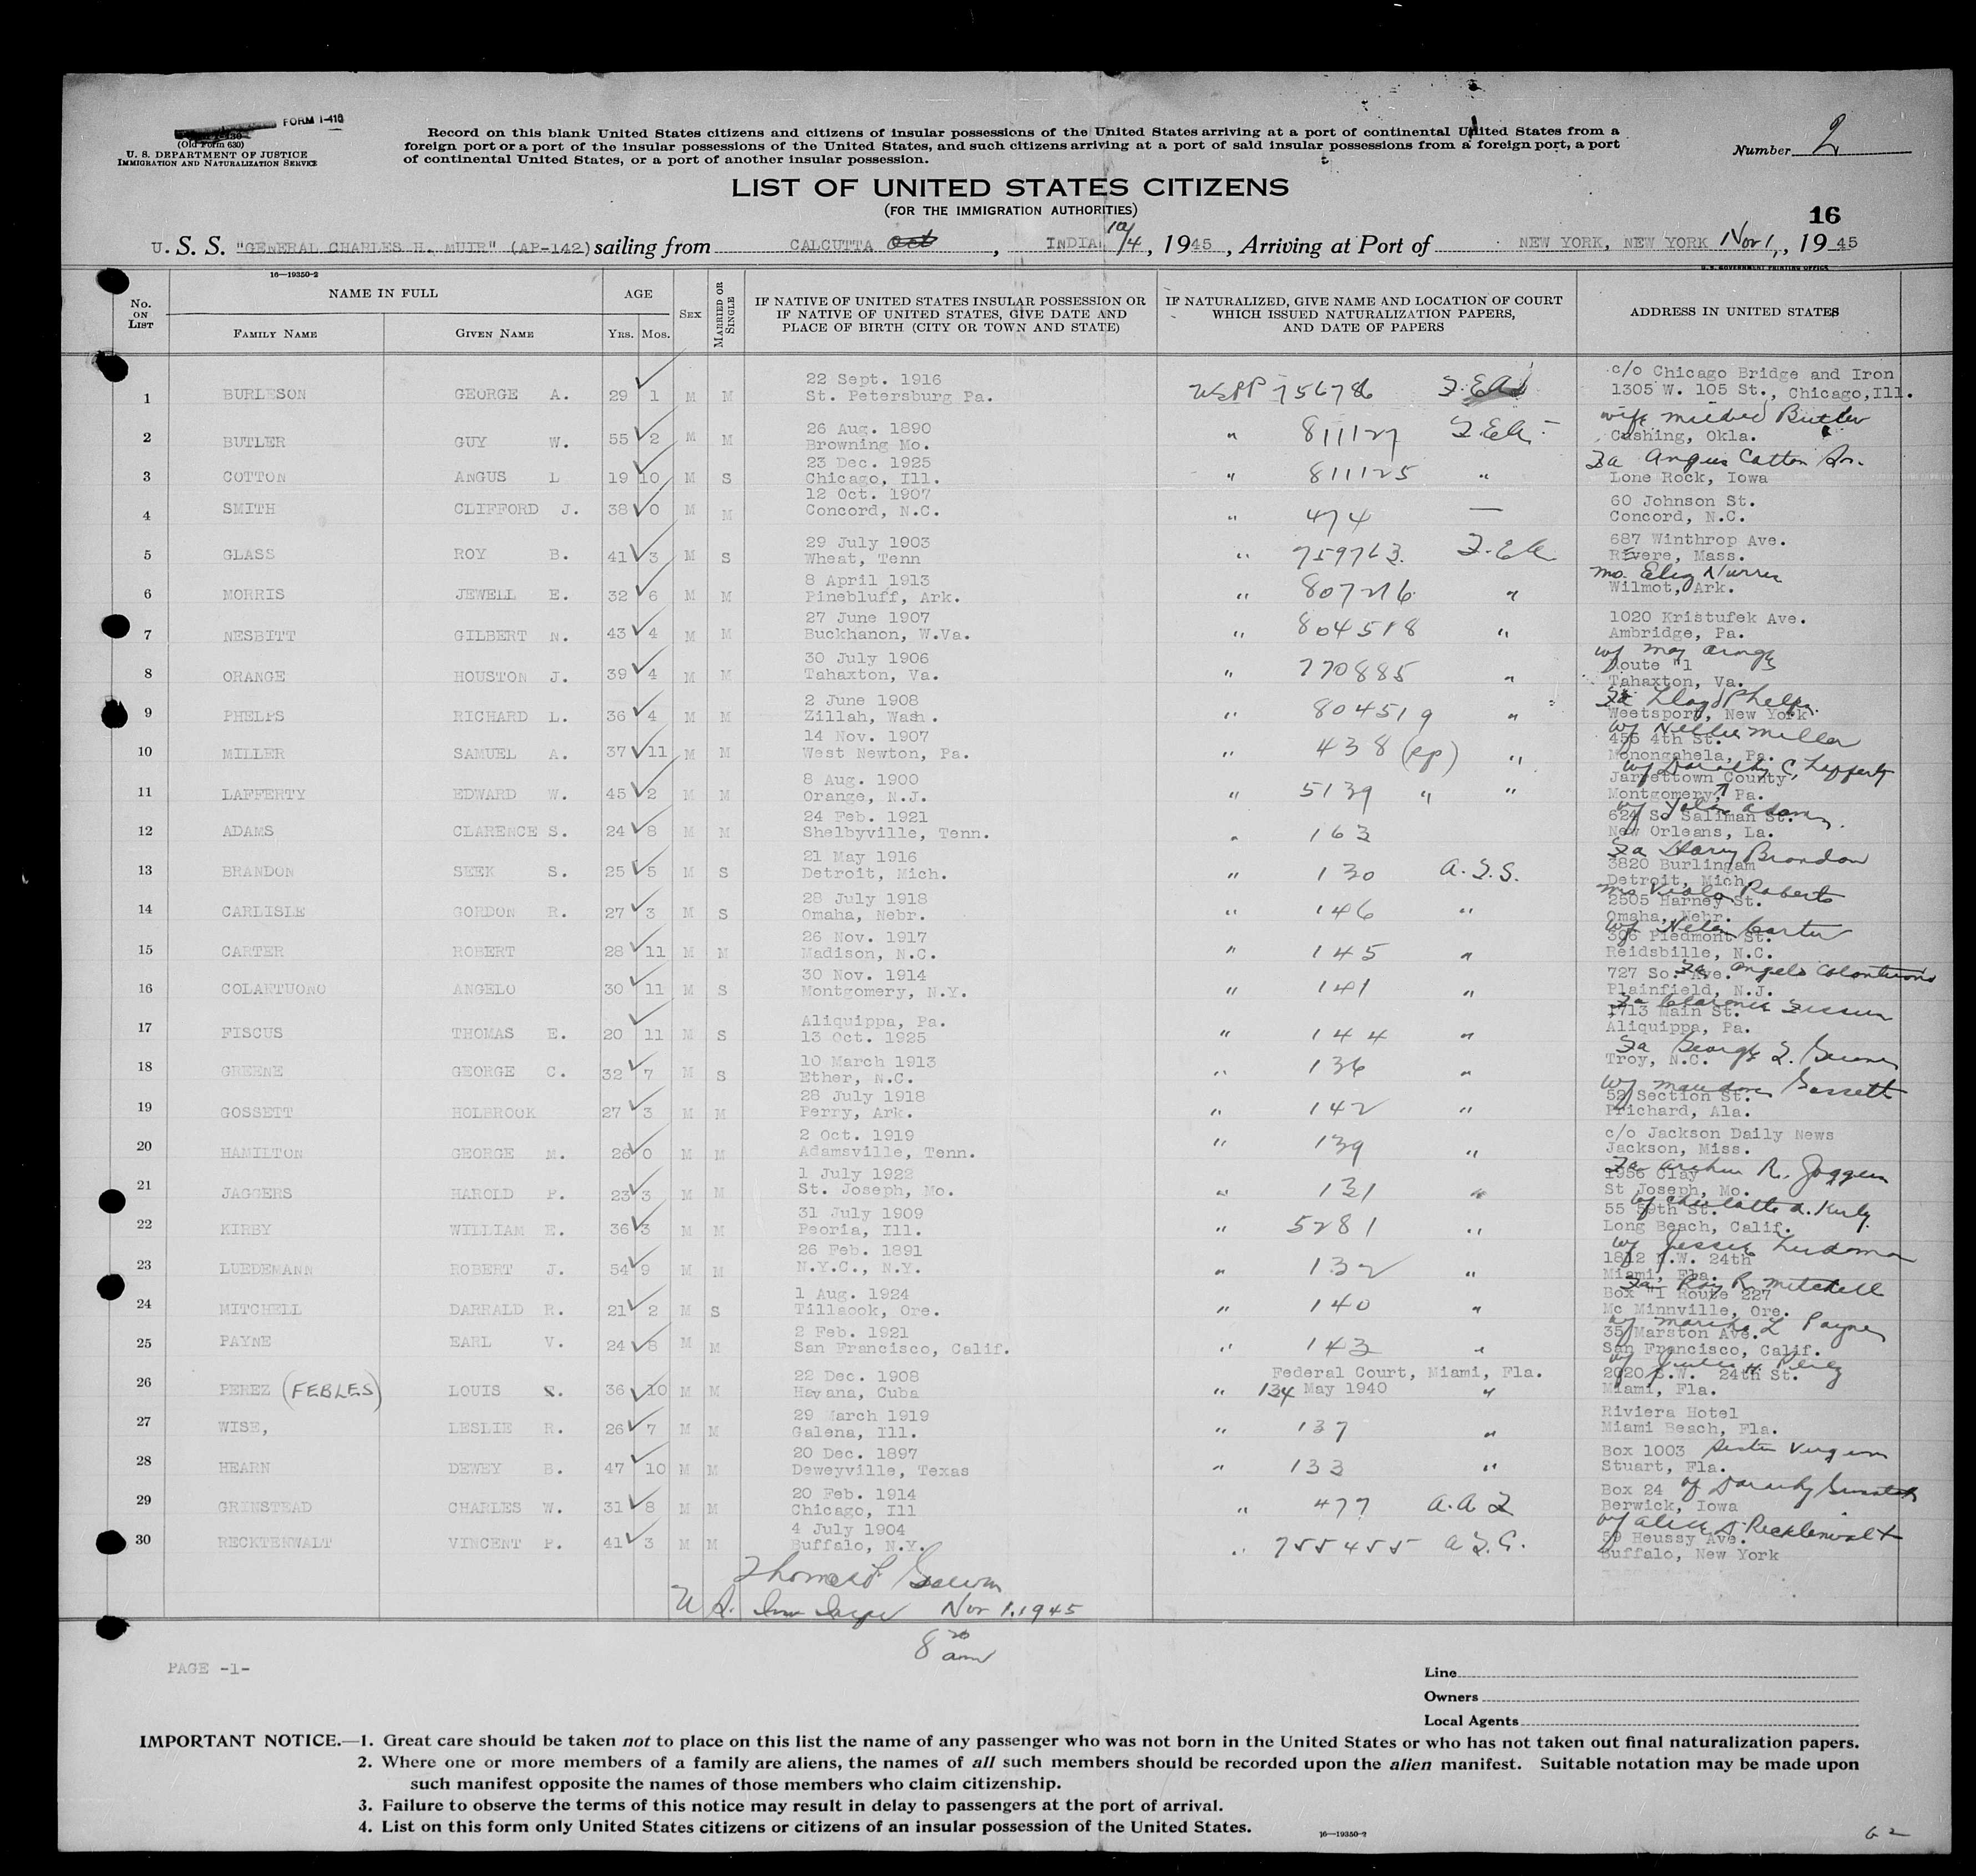 FORM I-418
(Old Form 630)
U. S. DEPARTMENT OF JUSTICE
IMMIGRATION AND NATURALIZATION SERVICE
Record on this blank United States citizens and citizens of insular possessions of the United States arriving at a port of continental United States from a
foreign port or a port of the insular possessions of the United States, and such citizens arriving at a port of said insular possessions from a foreign port, a port
of continental United States, or a port of another insular possession.
Number 2
LIST OF UNITED STATES CITIZENS
(FOR THE IMMIGRATION AUTHORITIES)
16
U. S. S. "GENERAL CHARLES H. MUIR" (AP-142) sailing from CALCUTTA Oct, INDIA 10/4, 1945, Arriving at Port of NEW YORK, NEW YORK Nov 1, 1945
16—19350-2
U. S. GOVERNMENT PRINTING OFFICE
No. ON LIST
NAME IN FULL
FAMILY NAME GIVEN NAME
AGE
Yrs. Mos.
SEX
MARRIED OR SINGLE
IF NATIVE OF UNITED STATES INSULAR POSSESSION OR
IF NATIVE OF UNITED STATES, GIVE DATE AND
PLACE OF BIRTH (CITY OR TOWN AND STATE)
IF NATURALIZED, GIVE NAME AND LOCATION OF COURT
WHICH ISSUED NATURALIZATION PAPERS,
AND DATE OF PAPERS
ADDRESS IN UNITED STATES
22 Sept. 1916 c/o Chicago Bridge and Iron
1 BURLESON GEORGE A. 29 1 M M St. Petersburg Pa. USPP 756786 1305 W. 105 St., Chicago, Ill.
26 Aug. 1890 wife Mildred Butler
2 BUTLER GUY W. 55 2 M M Browning Mo. " 811127 Cushing, Okla.
23 Dec. 1925 Fa Angus Cotton Sr.
3 COTTON ANGUS L 19 10 M S Chicago, Ill. " 811125 " Lone Rock, Iowa
12 Oct. 1907 60 Johnson St.
4 SMITH CLIFFORD J. 38 0 M M Concord, N.C. " 474 — Concord, N.C.
29 July 1903 687 Winthrop Ave.
5 GLASS ROY B. 41 3 M S Wheat, Tenn " 759763 Revere, Mass.
8 April 1913
6 MORRIS JEWELL E. 32 6 M M Pinebluff, Ark. " 807276 " Wilmot, Ark.
27 June 1907 1020 Kristufek Ave.
7 NESBITT GILBERT N. 43 4 M M Buckhanon, W.Va. " 804518 " Ambridge, Pa.
30 July 1906 Route "1
8 ORANGE HOUSTON J. 39 4 M M Tahaxton, Va. " 770885 " Tahaxton, Va.
2 June 1908 Fa Lloyd Phelps
9 PHELPS RICHARD L. 36 4 M M Zillah, Wash. " 804519 " Weetsport, New York
14 Nov. 1907 wf Nellie Miller
456 4th St.
10 MILLER SAMUEL A. 37 11 M M West Newton, Pa. " 438 (pp) " Monongahela, Pa.
8 Aug. 1900 wf Dorothy C. Lafferty
Jarrettown County,
11 LAFFERTY EDWARD W. 45 2 M M Orange, N.J. " 5139 " " Montgomery, Pa.
24 Feb. 1921 624 So Saliman St.
12 ADAMS CLARENCE S. 24 8 M M Shelbyville, Tenn. " 163 New Orleans, La.
21 May 1916 Fa Harry Brandon
3820 Burlingam
13 BRANDON SEEK S. 25 5 M S Detroit, Mich. " 130 A.T.S. Detroit, Mich.
28 July 1918 Mrs Viola Roberts
2505 Harney St.
14 CARLISLE GORDON R. 27 3 M S Omaha, Nebr. " 146 " Omaha, Nebr.
26 Nov. 1917 wf Helen Carter
306 Piedmont St.
15 CARTER ROBERT 28 11 M M Madison, N.C. " 145 " Reidsbille, N.C.
30 Nov. 1914 727 So. Ave. Fa Angelo Colantuono
16 COLANTUONO ANGELO 30 11 M S Montgomery, N.Y. " 141 " Plainfield, N.J.
Aliquippa, Pa. 1713 Main St.
17 FISCUS THOMAS E. 20 11 M S 13 Oct. 1925 " 144 " Aliquippa, Pa.
10 March 1913 Fa George
18 GREENE GEORGE C. 32 7 M S Ether, N.C. " 136 " Troy, N.C.
28 July 1918 52 Section St.
19 GOSSETT HOLBROOK 27 3 M M Perry, Ark. " 142 " Prichard, Ala.
2 Oct. 1919 c/o Jackson Daily News
20 HAMILTON GEORGE M. 26 0 M M Adamsville, Tenn. " 139 " Jackson, Miss.
1 July 1922 1956 Clay
21 JAGGERS HAROLD P. 23 3 M M St. Joseph, Mo. " 131 " St Joseph, Mo.
31 July 1909 wf Charlotte A. Kirby
55 59th St.
22 KIRBY WILLIAM E. 36 3 M M Peoria, Ill. " 5281 " Long Beach, Calif.
26 Feb. 1891 1812 N.W. 24th
23 LUEDEMANN ROBERT J. 54 9 M M N.Y.C., N.Y. " 132 " Miami, Fla.
1 Aug. 1924 Fa Roy R. Mitchell
Box "1 Route 227
24 MITCHELL DARRALD R. 21 2 M S Tillaook, Ore. " 140 " Mc Minnville, Ore.
2 Feb. 1921 35 Marston Ave.
25 PAYNE EARL V. 24 8 M M San Francisco, Calif. " 143 " San Francisco, Calif.
22 Dec. 1908 Federal Court, Miami, Fla. 2020 S.W. 24th St.
26 PEREZ (FEBLES) LOUIS 36 10 M M Havana, Cuba " 134 May 1940 " Miami, Fla.
29 March 1919 Riviera Hotel
27 WISE, LESLIE R. 26 7 M M Galena, Ill. " 137 " Miami Beach, Fla.
20 Dec. 1897 Box 1003
28 HEARN DEWEY B. 47 10 M M Deweyville, Texas " 133 " Stuart, Fla.
20 Feb. 1914 Box 24
29 GRINSTEAD CHARLES W. 31 8 M M Chicago, Ill " 477 Berwick, Iowa
4 July 1904 59 Heussy Ave.
30 RECKTENWALT VINCENT P. 41 3 M M Buffalo, N.Y. " 755455 Buffalo, New York
Nov 1, 1945
8 20 am
PAGE -1-
Line
Owners
Local Agents
IMPORTANT NOTICE.—1. Great care should be taken not to place on this list the name of any passenger who was not born in the United States or who has not taken out final naturalization papers.
2. Where one or more members of a family are aliens, the names of all such members should be recorded upon the alien manifest. Suitable notation may be made upon
such manifest opposite the names of those members who claim citizenship.
3. Failure to observe the terms of this notice may result in delay to passengers at the port of arrival.
4. List on this form only United States citizens or citizens of an insular possession of the United States.
16—19350-2